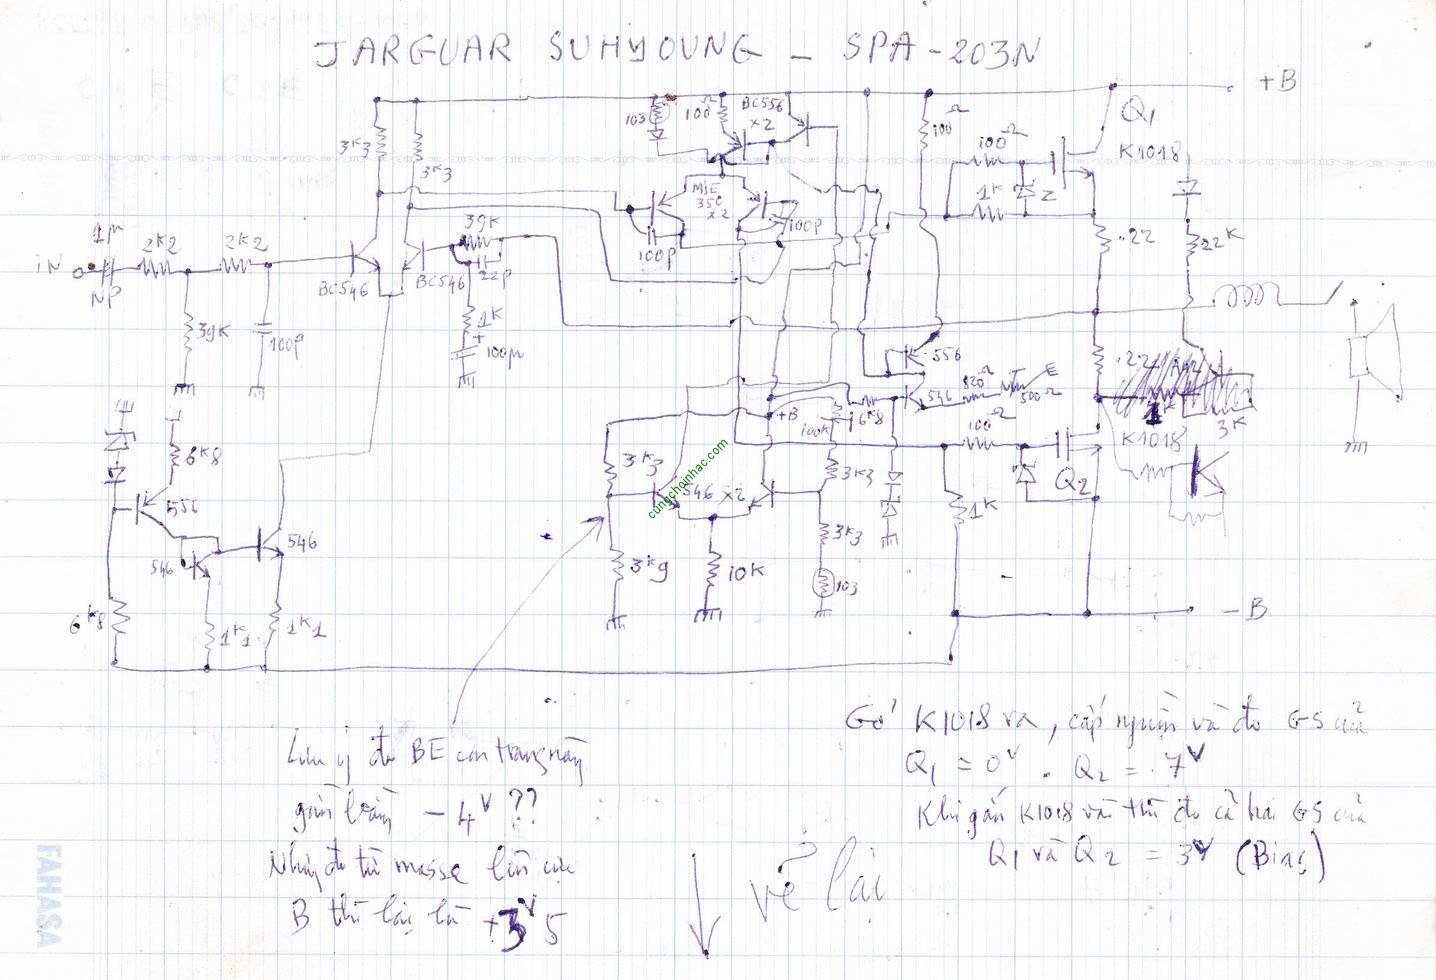 JARGUAR SUHYOUNG - SPA-203N
+B
103
100Ω
BC556
x2
Q1
100Ω
K1018
3K3
3K3
MJE
350
x2
100Ω
1K
Z
1µ
2K2
2K2
39K
100p
100p
.22
22K
iN
NP
BC546
BC546
22p
39K
100p
1K
+
100µ
556
.22
546
820Ω
500Ω
E
1K
3K
+B
100K
6K8
100Ω
K1018
6K8
3K3
546 x2
3K3
Q2
556
cungchoinhac.com
1K
546
546
3K9
10K
3K3
103
6K8
1K1
1K1
-B
Lưu ý đo BE con trang này
gần bằng -4V ??
Nhưng đo từ masse lên cực
B thì lại là +3V5
Gỡ K1018 ra, cấp nguồn và đo GS của
Q1 = 0V . Q2 = .7V
Khi gắn K1018 vào thì đo cả hai GS của
Q1 và Q2 = 3V (Bias)
vẽ lại
FAHASA